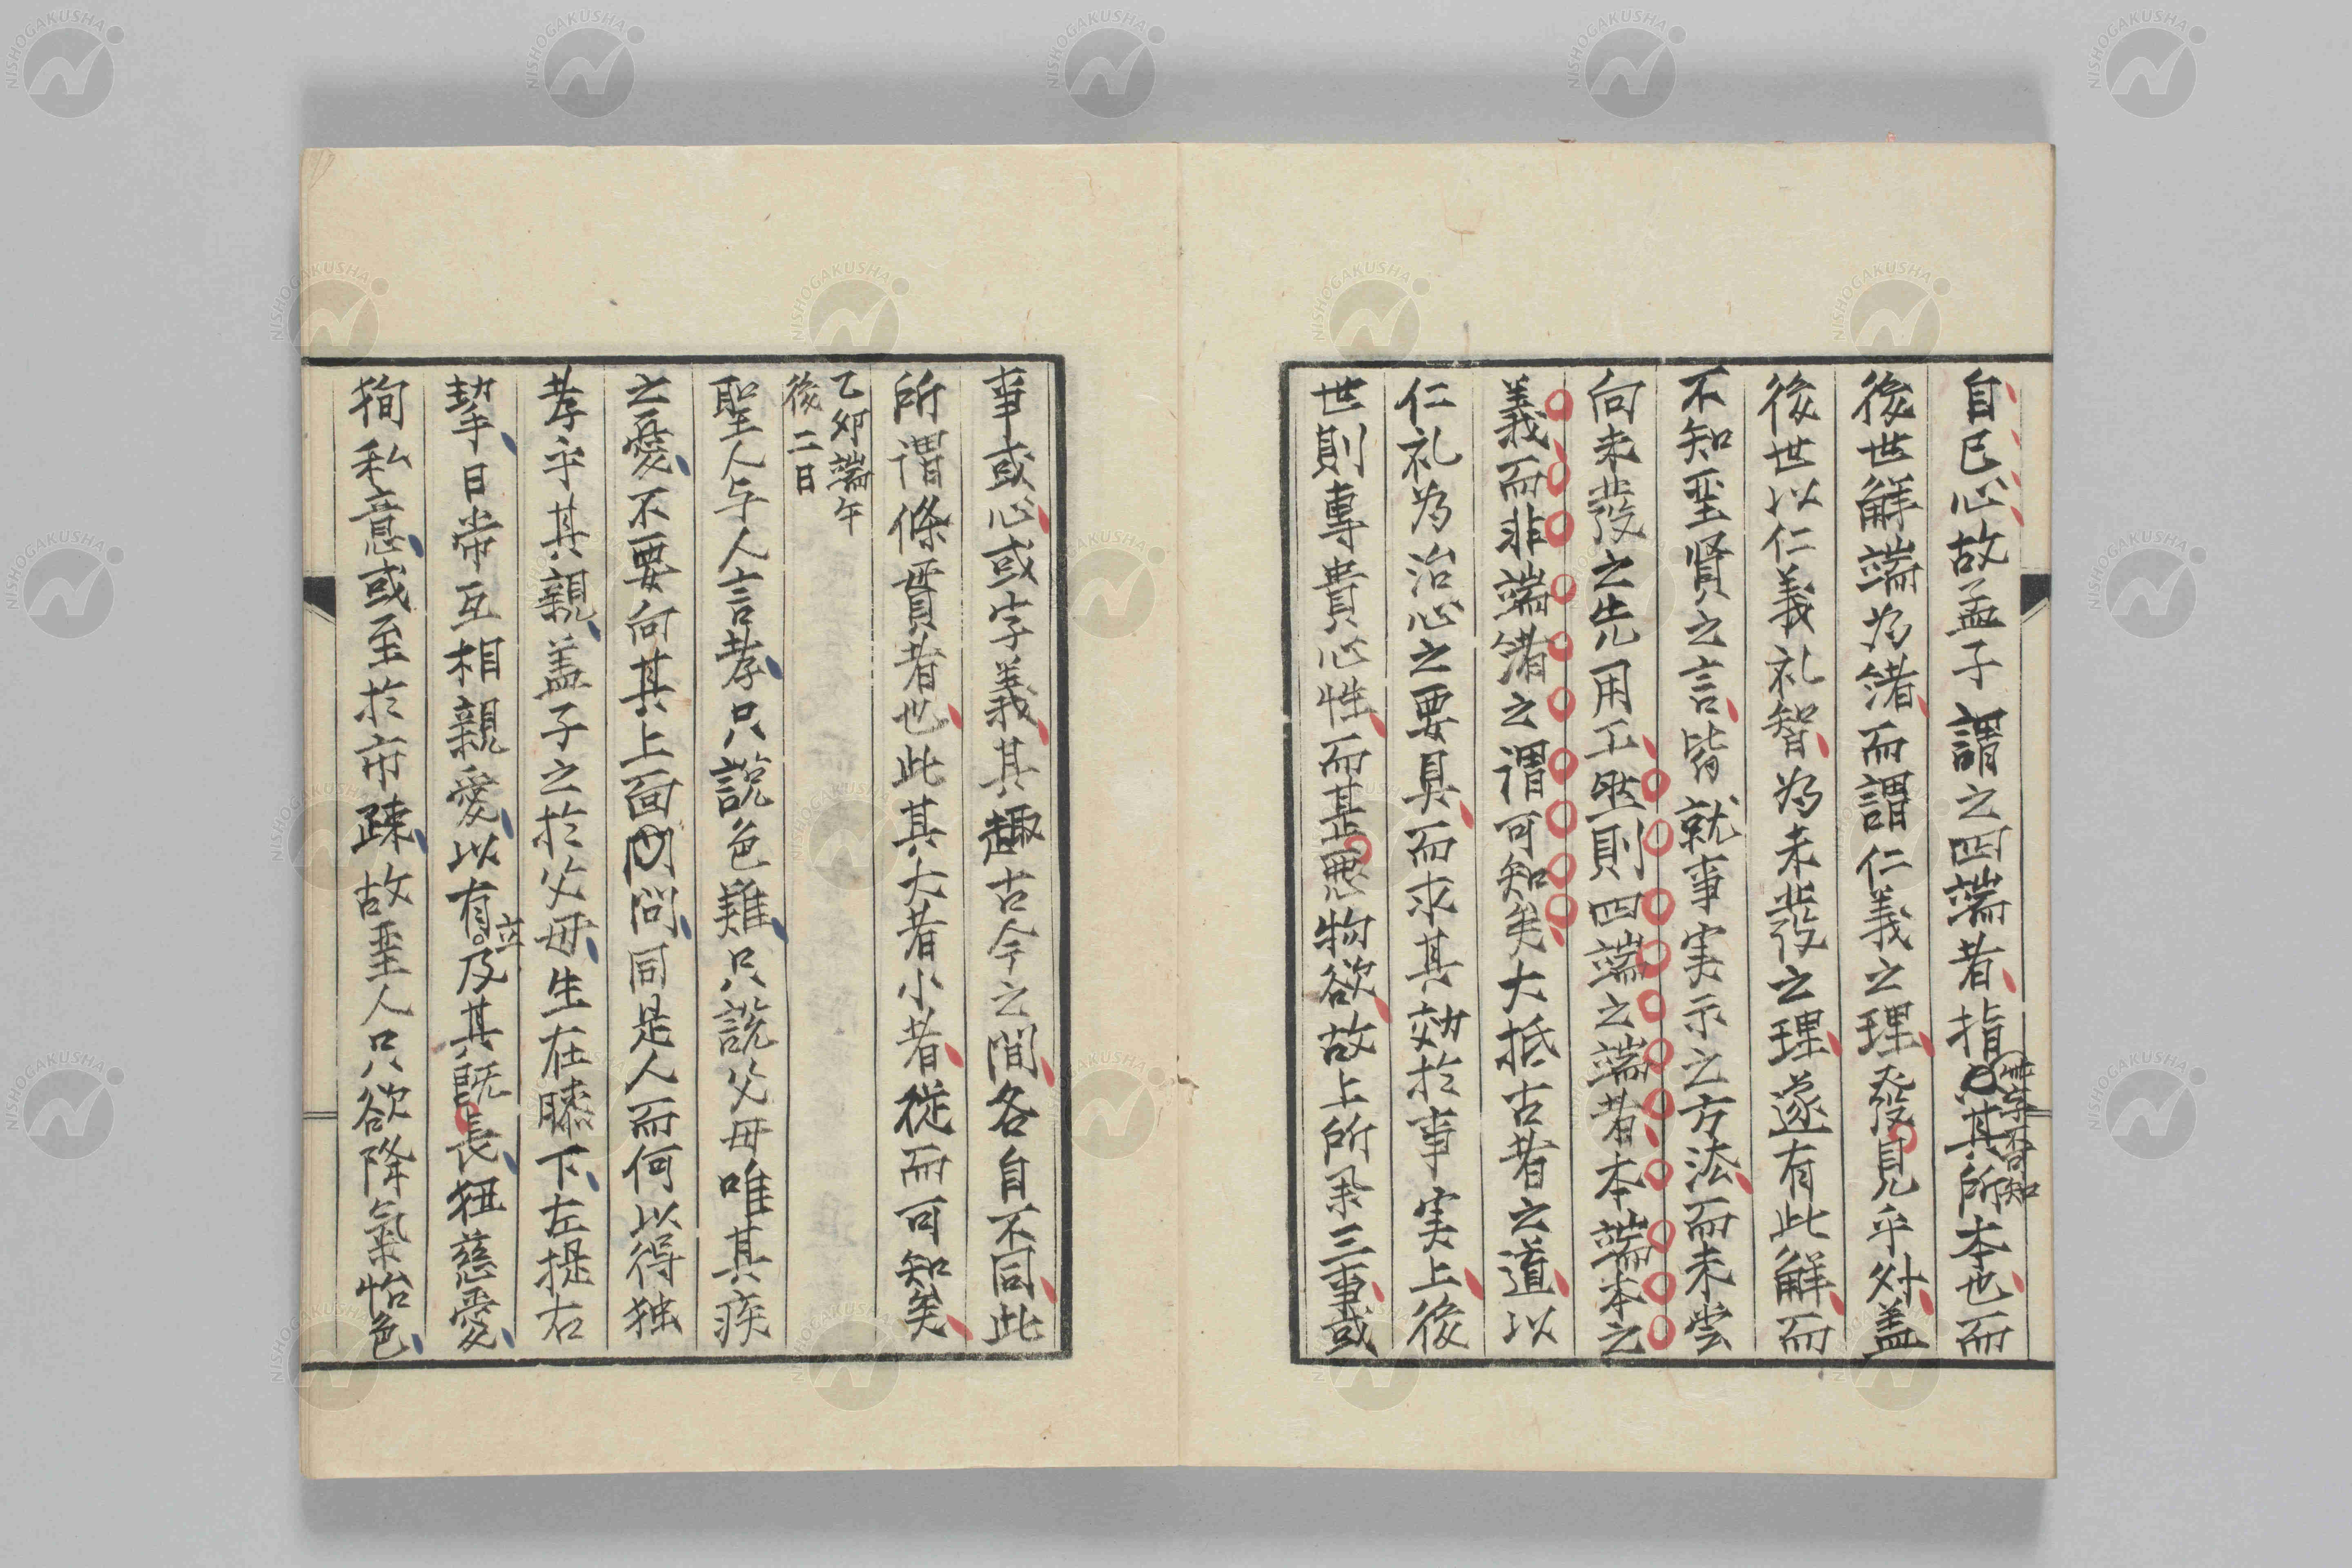 自已心故孟子謂之四端者指其所本也而
後世解端為緒而謂仁義之理發見乎外盖
後世以仁義礼智為未發之理遂有此解而
不知聖賢之言皆就事実示之方法而未尝
向未發之先用工然則四端之端者本端本之
義而非端緒之謂可知矣大抵古昔之道以
仁礼為治心之要具而求其効於事実上後
世則專貴心性而甚悪物欲故上所条三事或
事或心或字義其趣古今之間各自不同此
所謂條貫者也此其大者小者從而可知矣
乙卯端午
後二日
聖人与人言孝只說色難只說父母唯其疾
之憂不要向其上面問同是人而何以得独
孝乎其親盖子之於父母生在膝下左提右
挈日常互相親愛以有及其既長狃慈愛
狥私意或至於市疎故聖人只欲降氣怡色
NISHOGAKUSHA